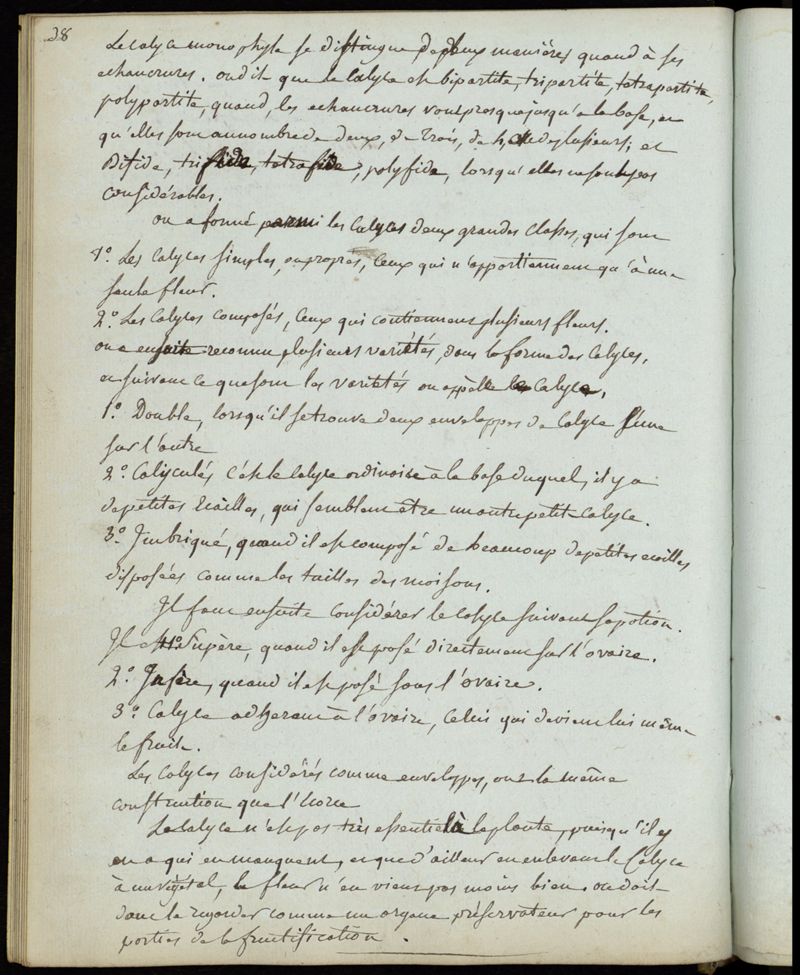 38
Le calyce monophyle se distingue de deux manières quand à ses
echancrures. on dit que le Calyce est bipartite, tripartite, tetrapartite,
polypartite, quand, les echancrures vont presque jusqu'a la base, et
qu'elles sont au nombre de deux, de trois, de 4, de plusieurs; et
Bifide, trifide, tetrafide, polyfide, lorsqu'elles ne sont pas
considérables.
on a formé parmi les Calyces deux grandes classes, qui sont
1°. Les Calyces simples, ou propres, ceux qui n'appartiennent qu'à une
seule fleur.
2°. Les Calyces composés, ceux qui contiennent plusieurs fleurs.
on a ensuite reconnu plusieurs variétés, dans la forme des Calyces,
et suivant ce que sont les variétés on appèlle le Calyce,
1°. Double, lorsqu'il se trouve deux enveloppes de Calyce l'une
sur l'autre
2°. Caliculés c'est le Calyce ordinaire à la base duquel, il y a
de petites Ecailles, qui semblent être un autre petit Calyce.
3°. Imbriqué, quand il est composé de beaucoup de petites ecailles
disposées comme les tuilles des maisons.
Il faut ensuite considérer le calyce suivant sa position.
Il est 1°. Supère, quand il est posé directement sur l'ovaire.
2°. Infère, quand il est posé sous l'ovaire.
3°. Calyce adherant à l'ovaire, celui qui devient lui même
le fruit.
Les Calyces considérés comme enveloppes, ont la même
construction que l'écorce
Le Calyce n'est pas très essentiel à la plante, puisqu'il y
en a qui en manquent, et que d'ailleur en enlevant le Calyce
à un végétal, la fleur n'en vient pas moins bien. on doit
donc le regarder comme un organe préservateur pour les
parties de la fructification.